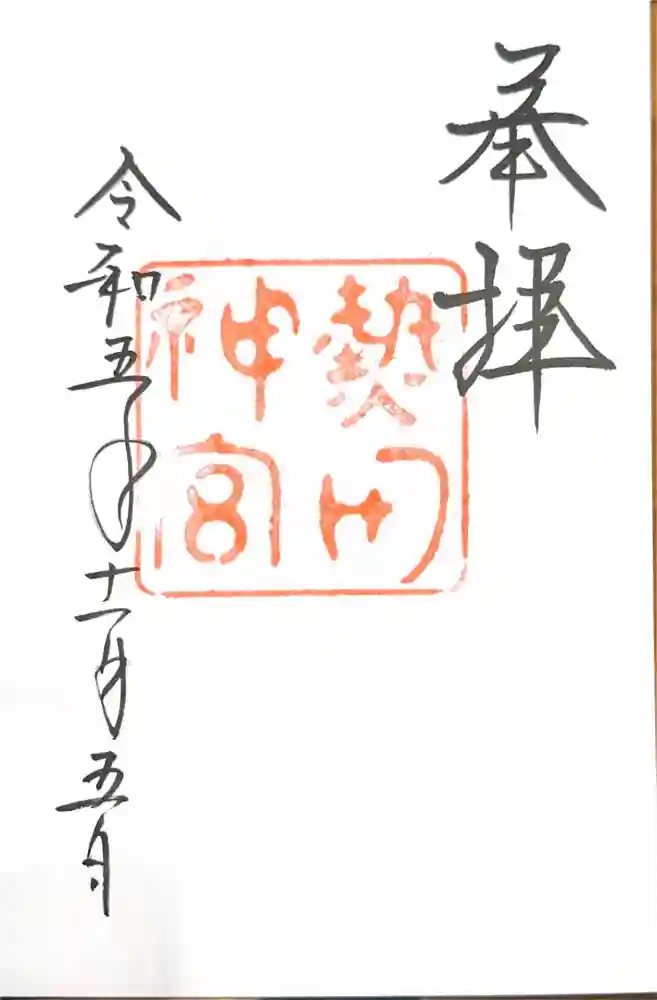 奉拝
熱田
神宮
令和五年十一月五日